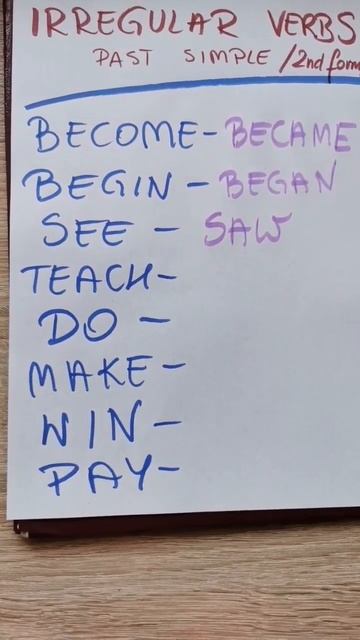 IRREGULAR VERBS
PAST SIMPLE / 2nd form
BECOME - BECAME
BEGIN - BEGAN
SEE - SAW
TEACH -
DO -
MAKE -
WIN -
PAY -